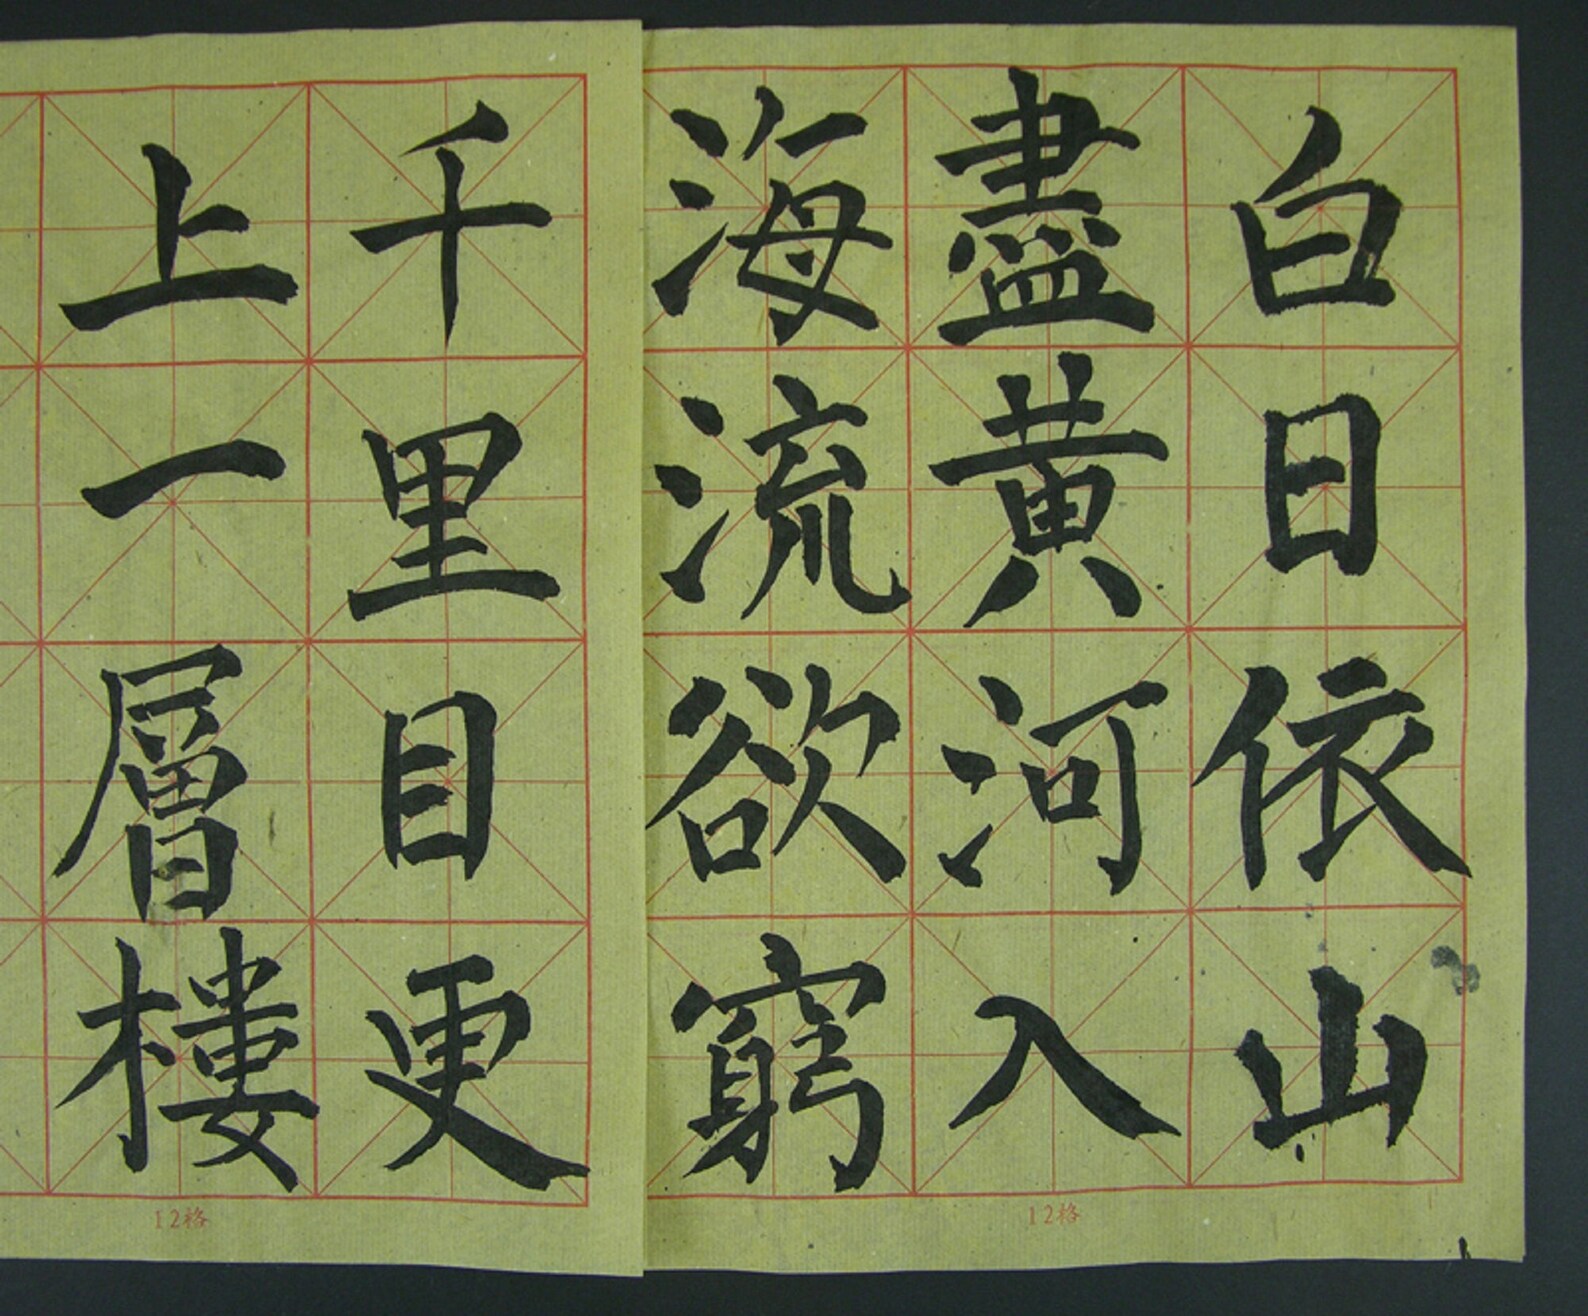 白日依山
盡黃河入
海流欲窮
千里目更
上一層樓
12格
12格